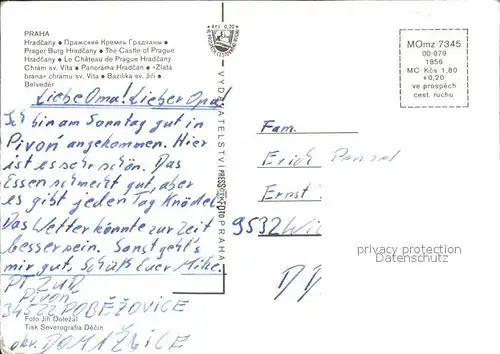 PRAHA
Hradčany ● Пражский Кремль Градчаны ●
Prager Burg Hradčany ● The Castle of Prague
Hradčany ● Le Château de Prague Hradčany
Chrám sv. Víta ● Panoráma Hradčan ● «Zlatá
brana» chrámu sv. Víta ● Bazilika sv. Jiří ●
Belvedér
Liebe Oma! Lieber Opa!
Ich bin am Sonntag gut in
Pivoň angekommen. Hier
ist es sehr schön. Das
Essen schmeckt gut, aber
es gibt jeden Tag Knödel.
Das Wetter könnte zur Zeit
besser sein. Sonst geht's
mir gut. Schüß Euer Mike.
PT ZUD
Pivoň
34522 POBĚŽOVICE
Foto Jiří Doležal
Tisk Severografia Děčín
okr. DOMAŽLICE
Kčs 0,20
VYDAVATELSTVÍ PRESSFOTO PRAHA
MOmz 7345
00-979
1856
MC Kčs 1,80
+0,20
ve prospěch
cest. ruchu
Fam.
Erich
Ernst
9532
privacy protection
Sammlerdatenschutz
DD